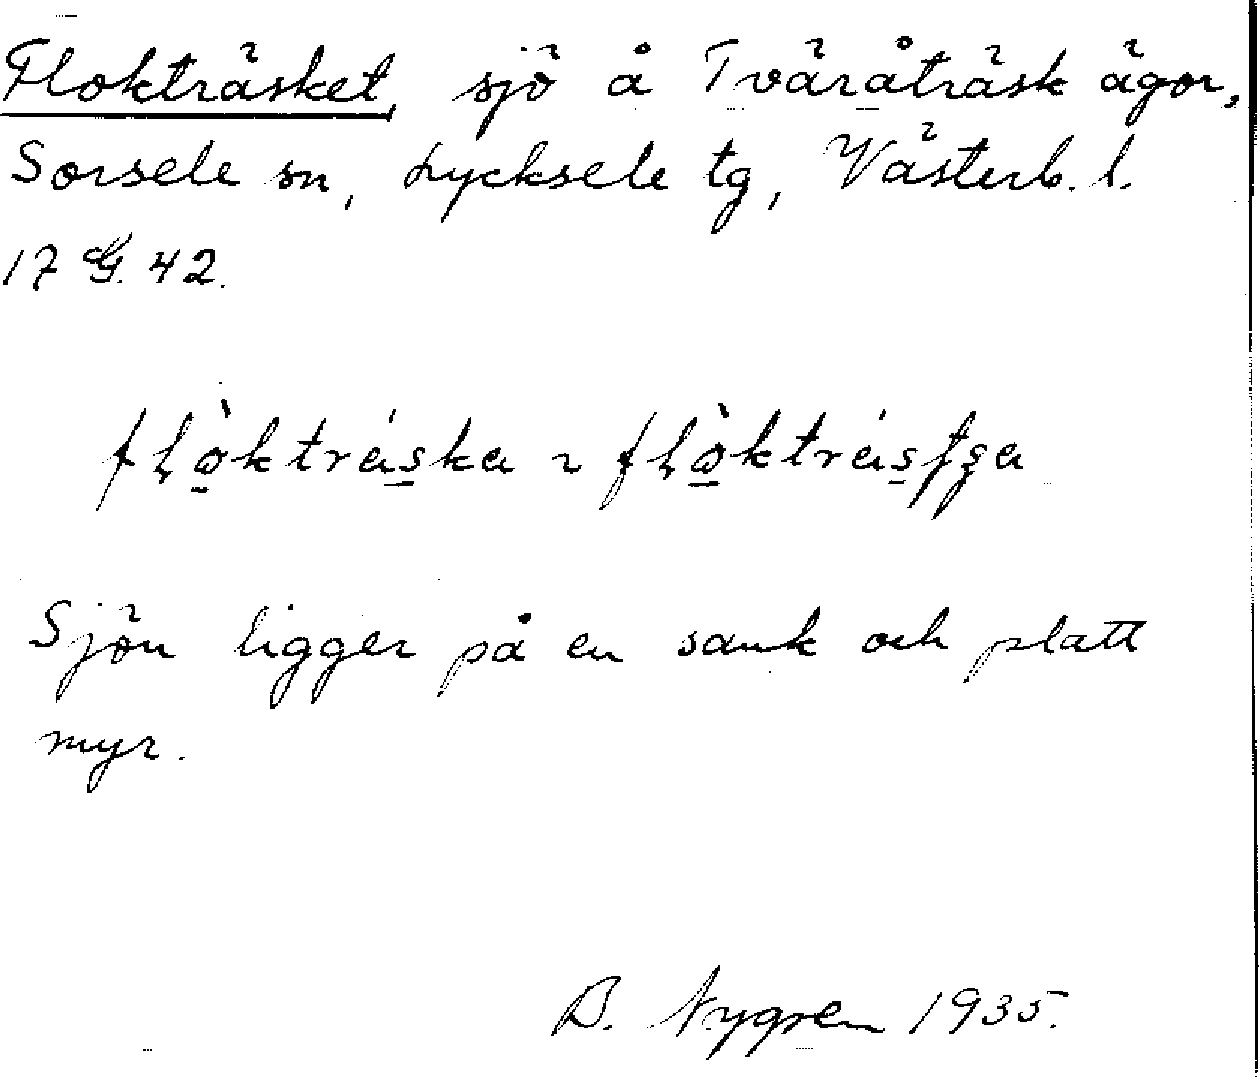 Flokträsket, sjö å Tväråträsk ägor,
Sorsele sn, Lycksele tg, Västerb. l.
17 G. 42.
Sjön ligger på en sank och platt
myr.
B. Nygren 1935.